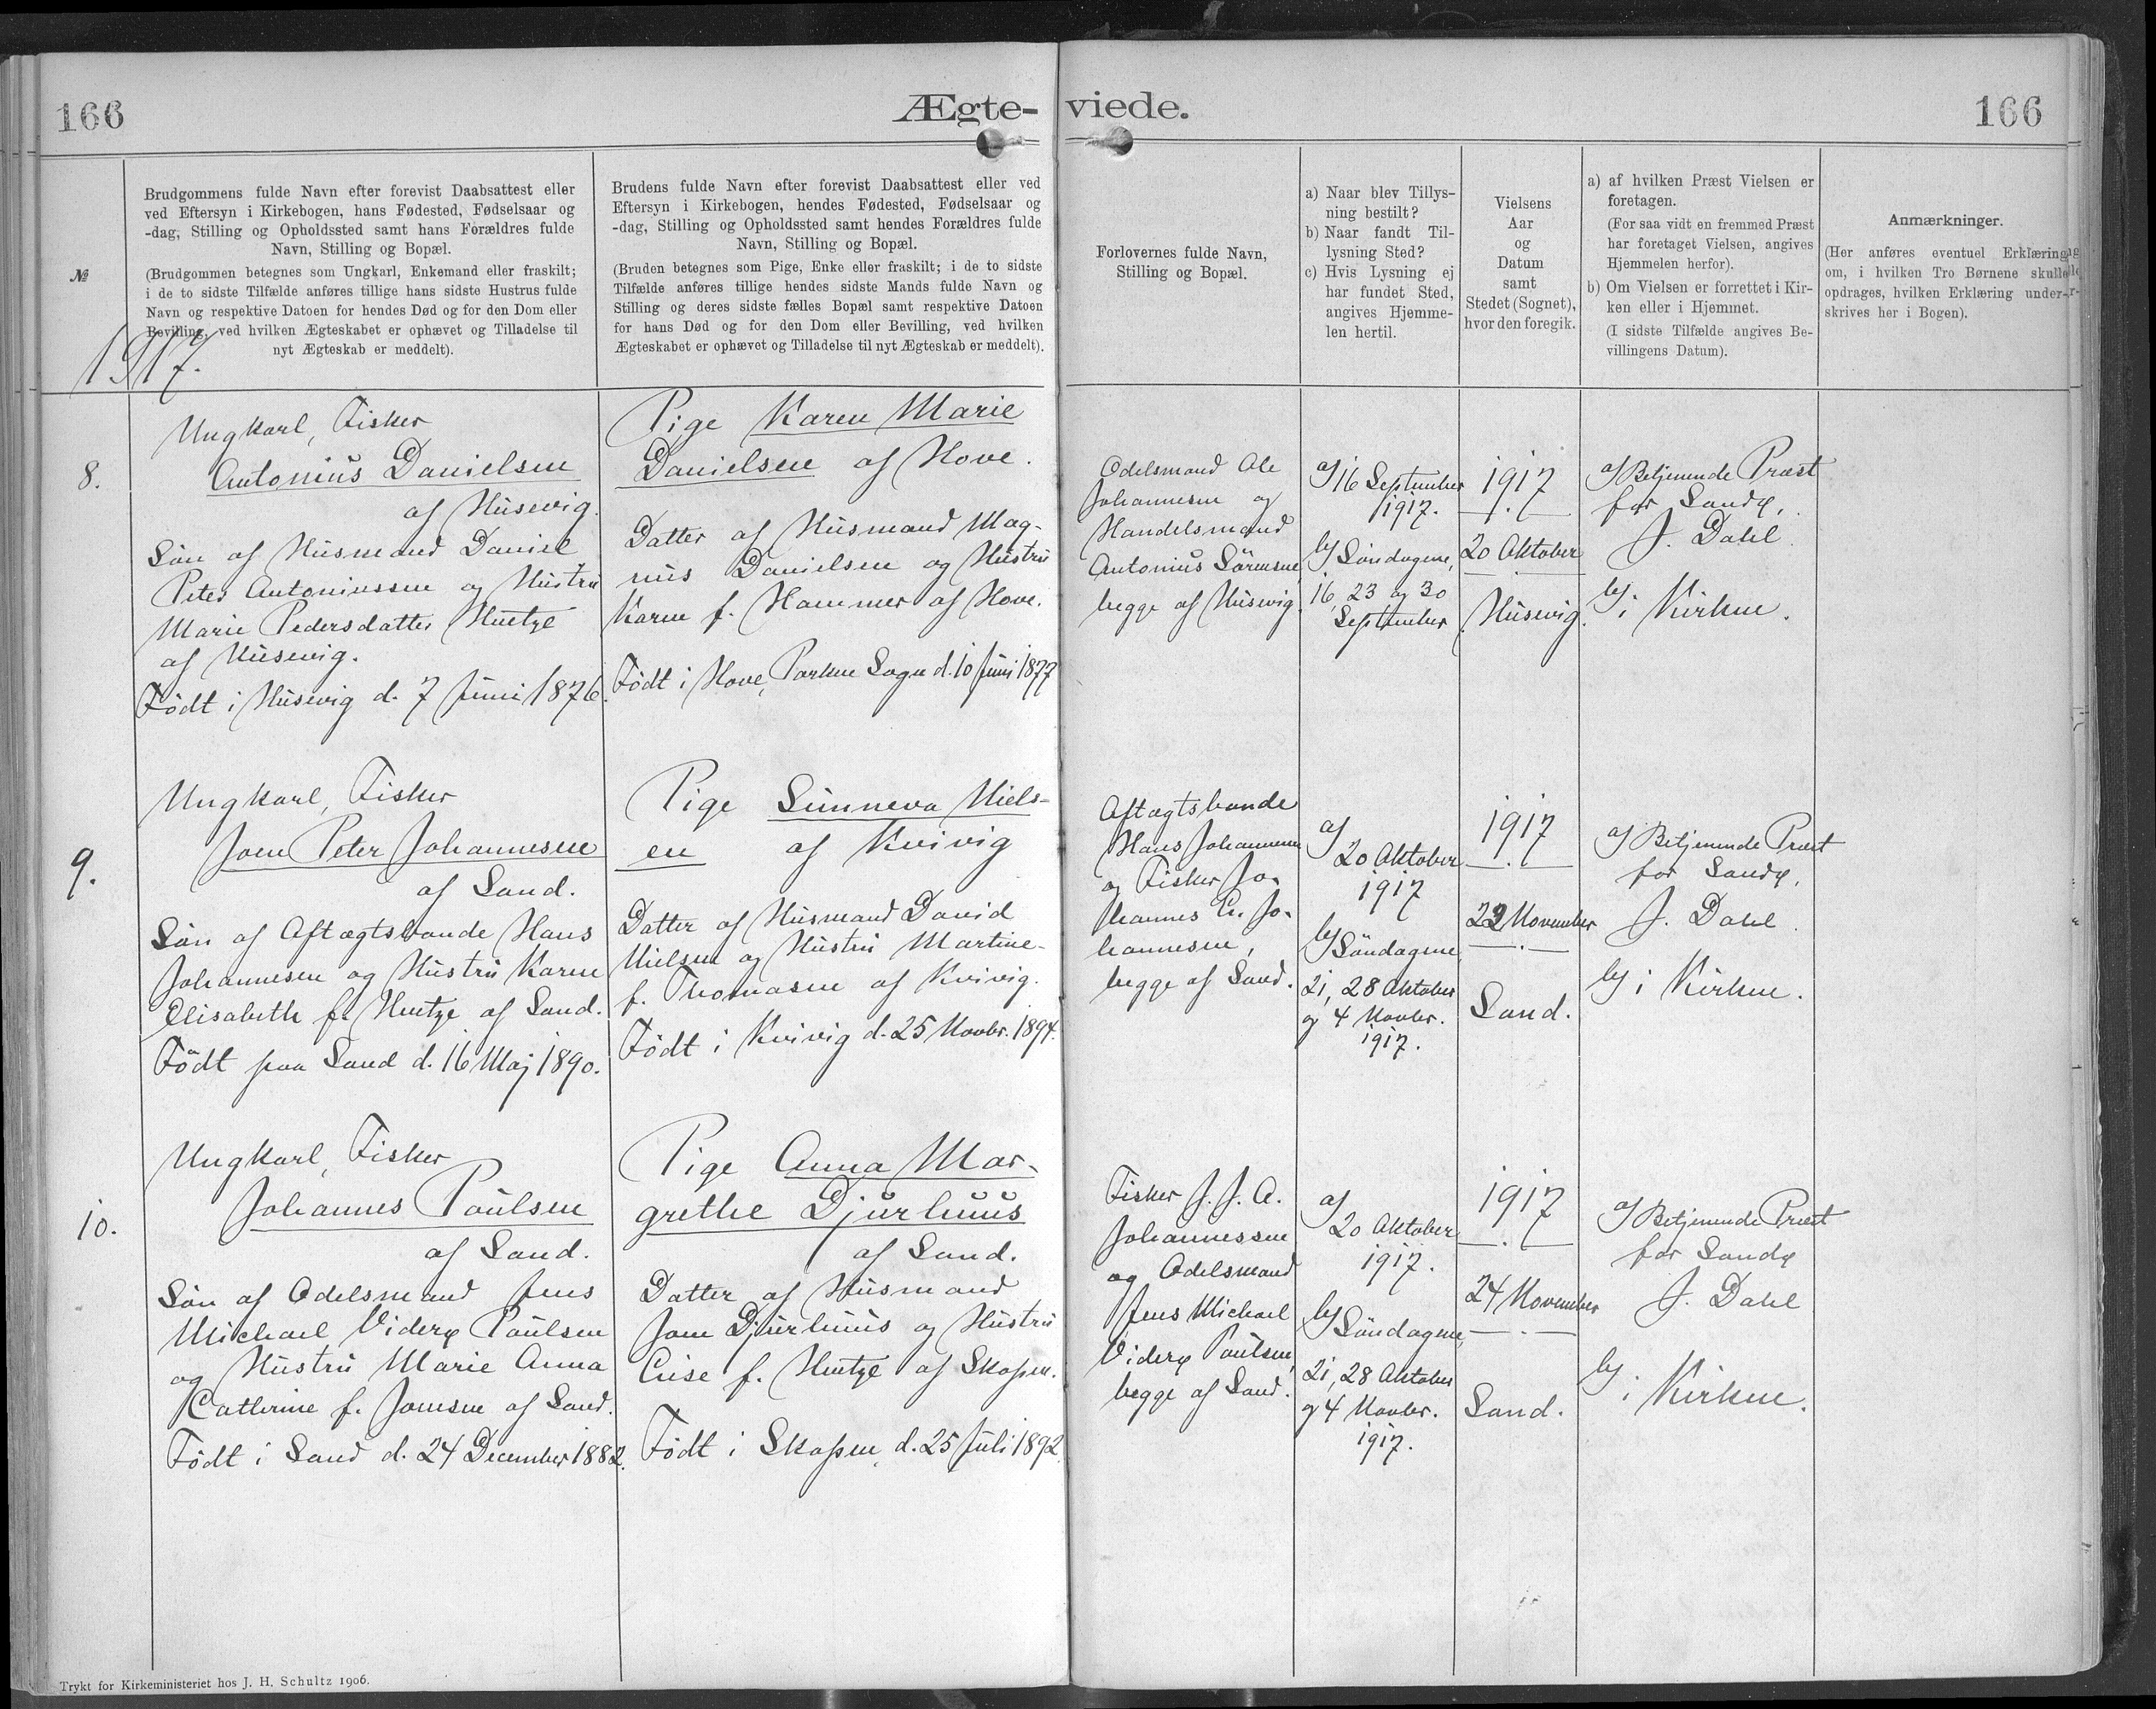 166
Ægte-
viede.
166
№
Brudgommens fulde Navn efter forevist Daabsattest eller
ved Eftersyn i Kirkebogen, hans Fødested, Fødselsaar og
-dag, Stilling og Opholdssted samt hans Forældres fulde
Navn, Stilling og Bopæl.
(Brudgommen betegnes som Ungkarl, Enkemand eller fraskilt;
i de to sidste Tilfælde anføres tillige hans sidste Hustrus fulde
Navn og respektive Datoen for hendes Død og for den Dom eller
Bevilling, ved hvilken Ægteskabet er ophævet og Tilladelse til
nyt Ægteskab er meddelt).
Brudens fulde Navn efter forevist Daabsattest eller ved
Eftersyn i Kirkebogen, hendes Fødested, Fødselsaar og
-dag, Stilling og Opholdssted samt hendes Forældres fulde
Navn, Stilling og Bopæl.
(Bruden betegnes som Pige, Enke eller fraskilt; i de to sidste
Tilfælde anføres tillige hendes sidste Mands fulde Navn og
Stilling og deres sidste fælles Bopæl samt respektive Datoen
for hans Død og for den Dom eller Bevilling, ved hvilken
Ægteskabet er ophævet og Tilladelse til nyt Ægteskab er meddelt).
Forlovernes fulde Navn,
Stilling og Bopæl.
a) Naar blev Tillys-
ning bestilt?
b) Naar fandt Til-
lysning Sted?
c) Hvis Lysning ej
har fundet Sted,
angives Hjemme-
len hertil.
Vielsens
Aar
og
Datum
samt
Stedet (Sognet),
hvor den foregik.
a) af hvilken Præst Vielsen er
foretagen.
(For saa vidt en fremmed Præst
har foretaget Vielsen, angives
Hjemmelen herfor).
b) Om Vielsen er forrettet i Kir-
ken eller i Hjemmet.
(I sidste Tilfælde angives Be-
villingens Datum).
Anmærkninger.
(Her anføres eventuel Erklæring
om, i hvilken Tro Børnene skulle
opdrages, hvilken Erklæring under-
skrives her i Bogen).
1917.
8.
Ungkarl, Fisker
Antonius Danielsen
af Husevig.
Søn af Husmand Daniel
Peter Antoniussen og Hustru
Marie Pedersdatter Hentze
af Husevig.
Födt i Husevig d. 7 Juni 1876.
Pige Karen Marie
Danielsen af Hove.
Datter af Husmand Mag-
nus Danielsen og Hustru
Karen f. Hammer af Hove.
Födt i Hove, Porken Sogn d. 10 Juni 1877
Odelsmand Ole
Johannesen og
Handelsmand
Antonius Sörensen,
begge af Husevig.
a) 16 September
1917.
b) Söndagene,
16, 23 og 30
September
1917
20 Oktober
Husevig.
a) Betjenende Præst
for Sandø,
J. Dahl.
b) i Kirken.
9.
Ungkarl, Fisker
Joen Peter Johannesen
af Sand.
Søn af Aftægtsbonde Hans
Johannesen og Hustru Karen
Elisabeth f. Hentze af Sand.
Födt paa Sand d. 16 Maj 1890.
Pige Sunneva Niels-
en af Kvivig
Datter af Husmand David
Nielsen og Hustru Martine
f. Thomasen af Kvivig.
Födt i Kvivig d. 25 Novbr. 1894.
Aftægtsbonde
Hans Johannesen
og Fisker Jo-
hannes E. Jo-
hannesen,
begge af Sand.
a)
20 Oktober
1917
b) Söndagene,
21, 28 Oktober
og 4 Novbr.
1917.
1917
22 November
Sand.
a) Betjenende Præst
for Sandø,
J. Dahl.
b) i Kirken.
10.
Ungkarl, Fisker
Johannes Poulsen
af Sand.
Søn af Odelsmand Jens
Michael Viderø Poulsen
og Hustru Marie Anna
Cathrine f. Joensen af Sand.
Födt i Sand d. 24 December 1882.
Pige Anna Mar-
grethe Djurhuus
af Sand.
Datter af Husmand
Joen Djurhuus og Hustru
f. Hentze af Skopen.
Födt i Skopen, d. 25 Juli 1892.
Fisker J. J. A.
Johannessen
og Odelsmand
Jens Michael
Viderø Poulsen,
begge af Sand.
a)
20 Oktober
1917.
b) Söndagene,
21, 28 Oktober
og 4 Novbr.
1917.
1917
24 November
Sand.
a) Betjenende Præst
for Sandø
J. Dahl
b)
i Kirken.
Trykt for Kirkeministeriet hos J. H. Schultz 1906.